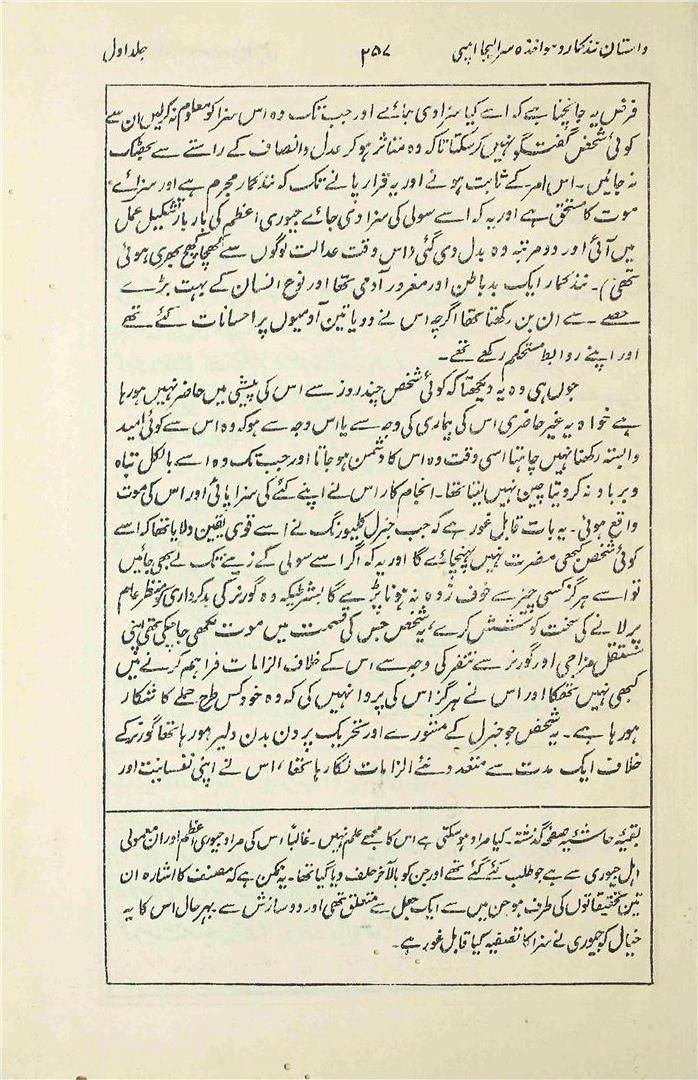 داستان نند کمار و مواخذہ سر الیجا امپی ۲۵۷ جلد اول
فرض یہ جانچنا ہے کہ اسے کیا سزا دی جائے اور جب تک وہ اس سزا کو معلوم نہ کرلیں ان سے
کوئی شخص گفتگو نہیں کرسکتا تاکہ وہ متاثر ہوکر عدل و انصاف کے راستے سے بھٹک
نہ جائیں ۔ اس امر کے ثابت ہونے اور یہ قرار پانے تک کہ نند کمار مجرم ہے اور سزائے
موت کا مستحق ہے اور یہ کہ اسے سولی کی سزا دی جائے جیوری اعظم کی بار بار تشکیل عمل
میں آئی اور دو مرتبہ وہ بدل دی گئی (اس وقت عدالت لوگوں سے کھچا کھچ بھری ہوئی
تھی) ۔ نند کمار ایک بد باطن اور مغرور آدمی تھا اور نوع انسان کے بہت بڑے
حصے سے ان بن رکھتا تھا اگرچہ اس نے دو یا تین آدمیوں پر احسانات کئے تھے
اور اپنے روابط مستحکم رکھے تھے ۔
جوں ہی وہ یہ دیکھتا کہ کوئی شخص چند روز سے اس کی پیشی میں حاضر نہیں ہورہا
ہے خواہ یہ غیر حاضری اس کی بیماری کی وجہ سے یا اس وجہ سے ہو کہ وہ اس سے کوئی امید
وابستہ رکھنا نہیں چاہتا اسی وقت وہ اس کا دشمن ہوجاتا اور جب تک وہ اسے بالکل تباہ
و برباد نہ کردیتا چین نہیں لیتا تھا ۔ انجام کار اس نے اپنے کئے کی سزا پائی اور اس کی موت
واقع ہوئی ۔ یہ بات قابل غور ہے کہ جب جنرل کلیورنگ نے اسے قوی یقین دلایا تھا کہ اسے
کوئی شخص کبھی مضرت نہیں پہنچائے گا اور یہ کہ اگر اسے سولی کے زینے تک لے بھی جائیں
تو اسے ہرگز کسی چیز سے خوف زدہ نہ ہونا پڑے گا بشرطیکہ وہ گورنر کی بدکرداری کو منظر عام
پر لانے کی سخت کوشش کرے ، یہ شخص جس کی قسمت میں موت لکھی جاچکی تھی اپنی
مستقل مزاجی اور گورنر سے تنفر کی وجہ سے اس کے خلاف الزامات فراہم کرنے میں
کبھی نہیں تھکا اور اس نے ہرگز اس کی پروا نہیں کی کہ وہ خود کس طرح حملے کا شکار
ہورہا ہے ۔ یہ شخص جو جنرل کے مشورے اور تحریک پر دن بدن دلیر ہورہا تھا گورنر کے
خلاف ایک مدت سے متعدد نئے الزامات لگارہا تھا ، اس نے اپنی نفسانیت اور
بقیۂ حاشیۂ صفحۂ گذشتہ ۔ کیا مراد ہوسکتی ہے اس کا مجھے علم نہیں ۔ غالباً اس کی مراد جیوری اعظم اور ان معمولی
اہل جیوری سے ہے جو طلب کئے گئے تھے اور جن کو بالآخر حلف دیا گیا تھا ۔ یہ ممکن ہے کہ مصنف کا اشارہ ان
تین تحقیقاتوں کی طرف ہو جن میں سے ایک جعل سے متعلق تھی اور دو سازش سے ۔ بہر حال اس کا یہ
خیال کہ جیوری نے سزا کا تصفیہ کیا قابل غور ہے ۔